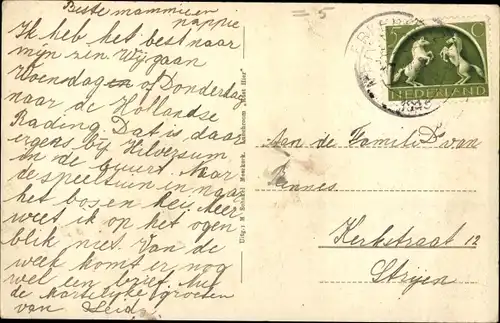 Beste mammie en
pappie
Ik heb het best naar
mijn zin. Wij gaan
Woensdag of Donderdag
naar de Hollandse
Rading. Dat is daar
ergens bij Hilversum
in de buurt. Naar
de speeltuin en naar
het bos en hei. Meer
weet ik op het ogen
blik niet. Van de
week komt er nog
wel een brief. Met
de hartelijke groeten
van
= 5
5 C
NEDERLAND
Aan de Familie D. van
Pinnes
Kerkstraat 12
Strijen